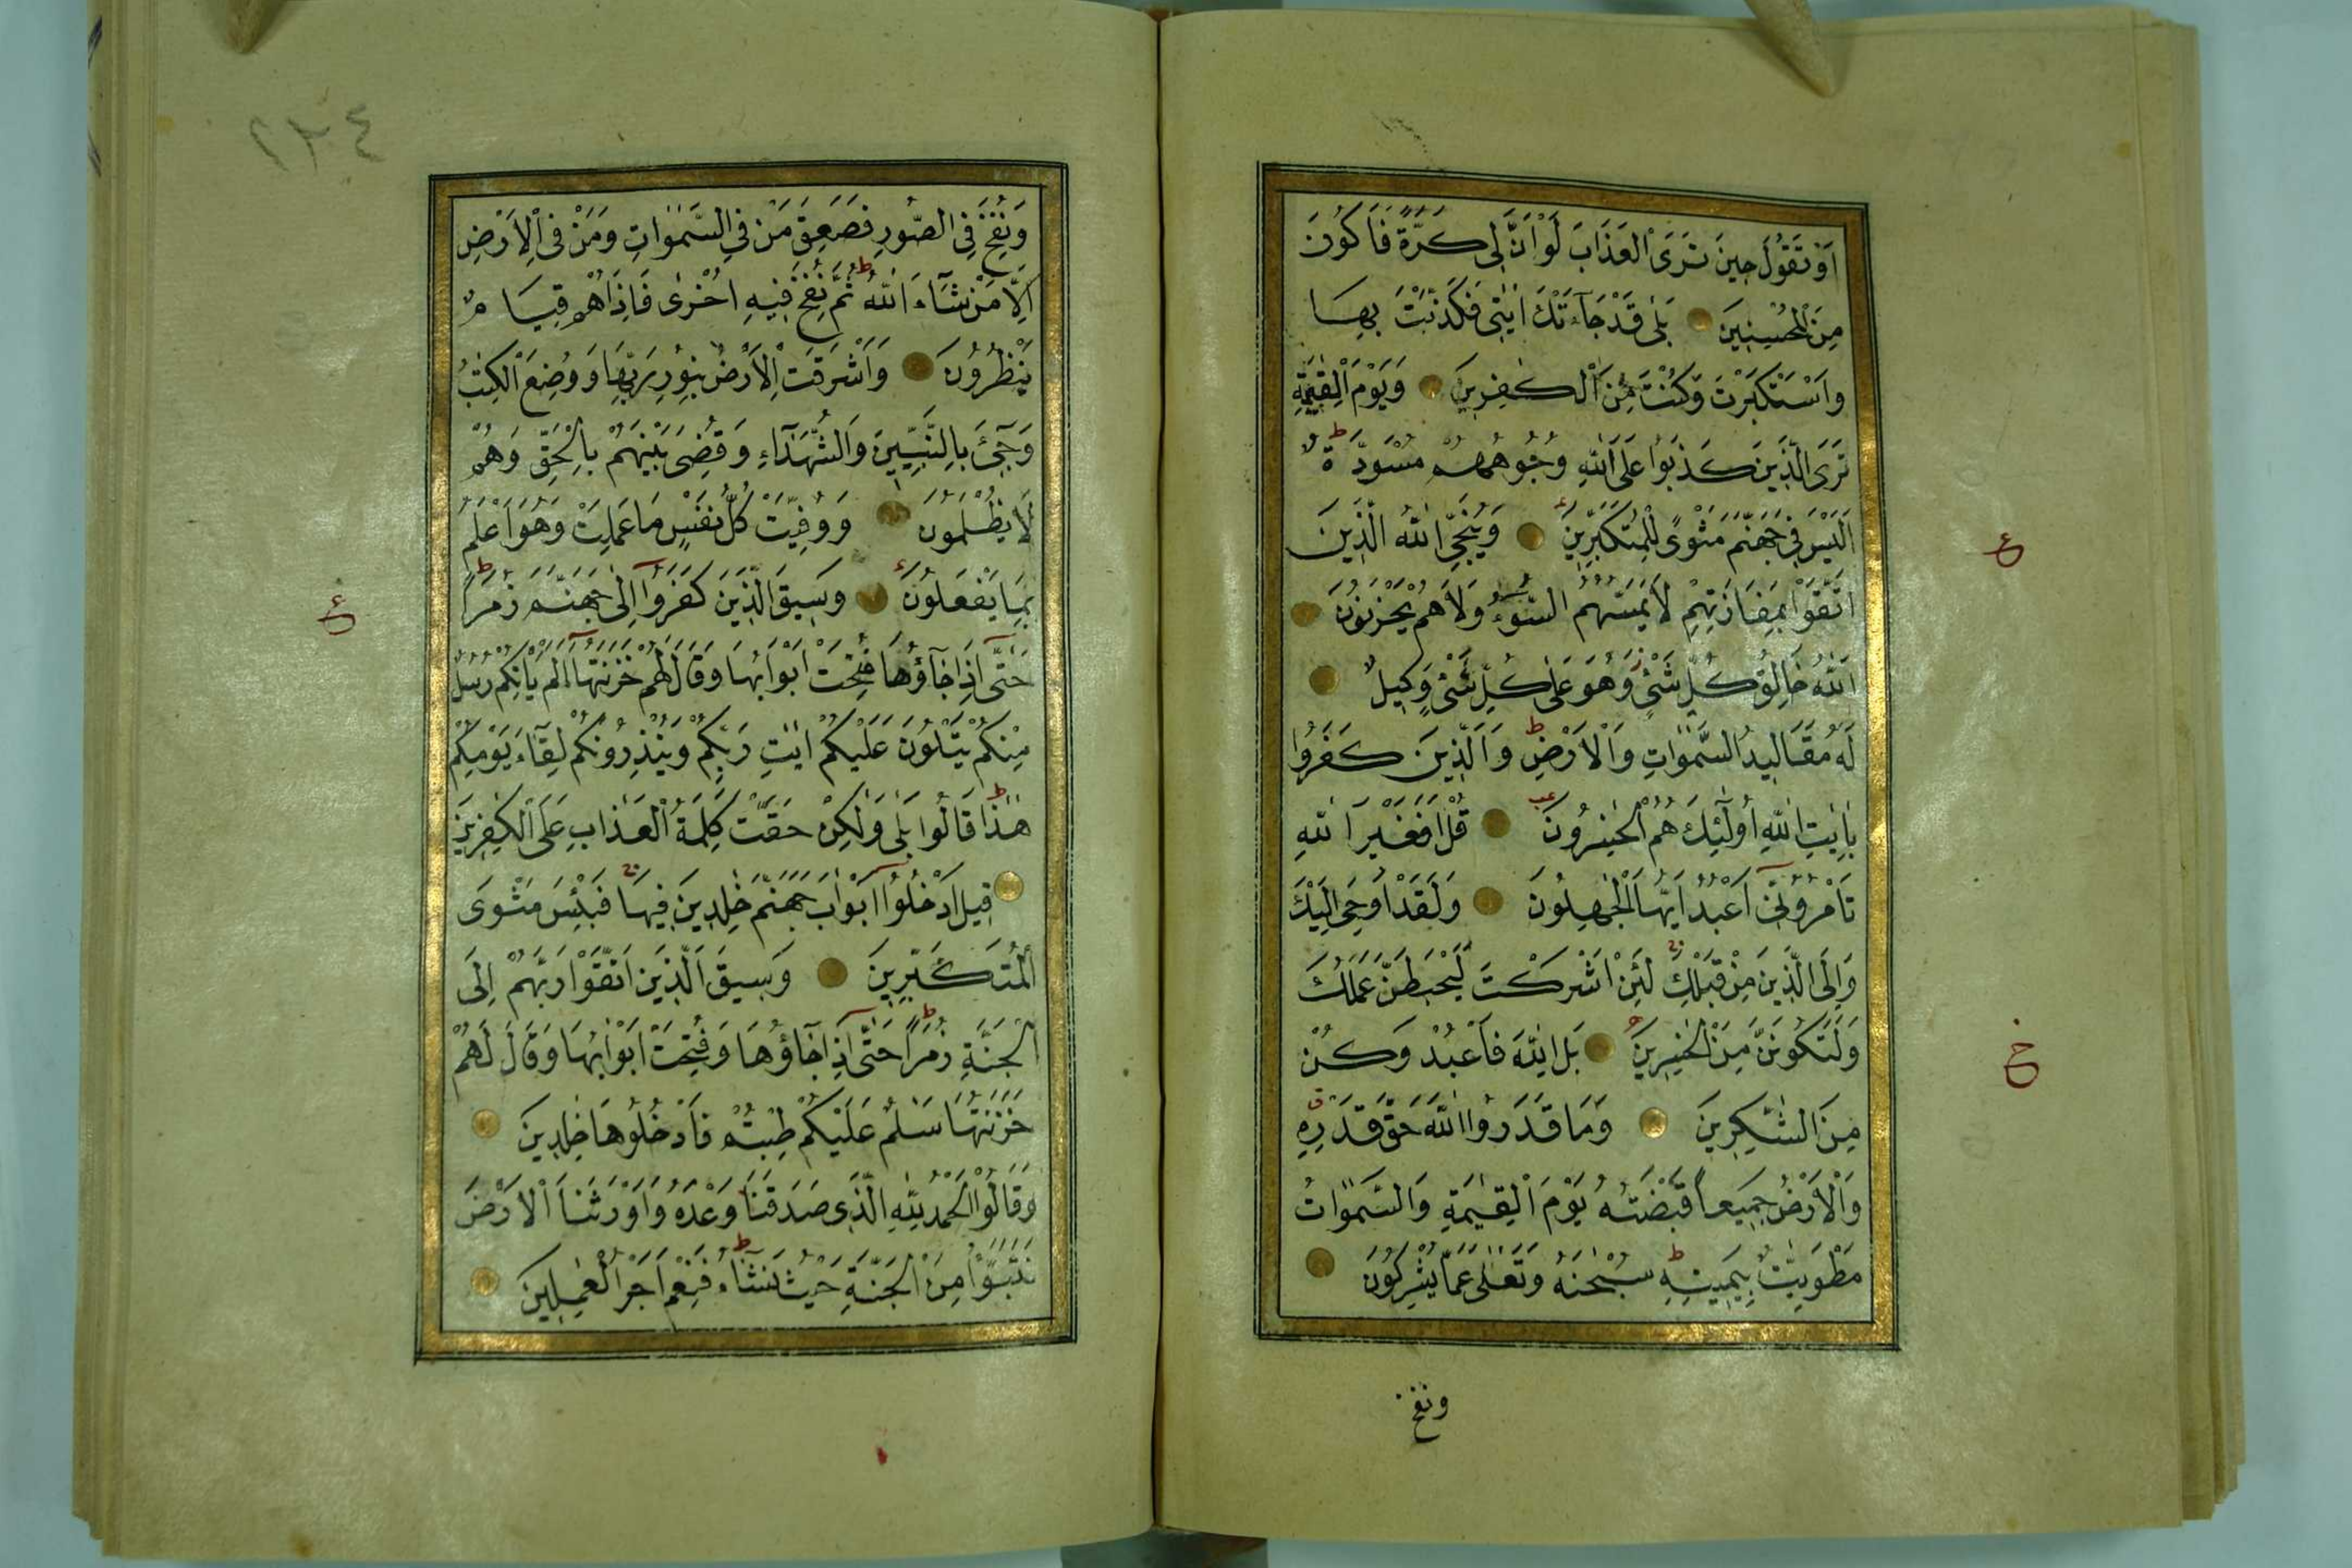 اَوْ تَقُولَ حِينَ تَرَى الْعَذَابَ لَوْ اَنَّ لِى كَرَّةً فَاَكُونَ
مِنَ الْمُحْسِنِينَ بَلٰى قَدْ جَآءَتْكَ اٰيٰتِى فَكَذَّبْتَ بِهَا
وَاسْتَكْبَرْتَ وَكُنْتَ مِنَ الْكٰفِرِينَ وَيَوْمَ الْقِيٰمَةِ
تَرَى الَّذِينَ كَذَبُوا عَلَى اللّٰهِ وُجُوهُهُمْ مُسْوَدَّةٌ
اَلَيْسَ فِى جَهَنَّمَ مَثْوًى لِلْمُتَكَبِّرِينَ وَيُنَجِّى اللّٰهُ الَّذِينَ
اتَّقَوْا بِمَفَازَتِهِمْ لَا يَمَسُّهُمُ السُّوءُ وَلَا هُمْ يَحْزَنُونَ
اَللّٰهُ خَالِقُ كُلِّ شَىْءٍ وَهُوَ عَلٰى كُلِّ شَىْءٍ وَكِيلٌ
لَهُ مَقَالِيدُ السَّمٰوَاتِ وَالْاَرْضِ وَالَّذِينَ كَفَرُوا
بِاٰيٰتِ اللّٰهِ اُولٰٓئِكَ هُمُ الْخٰسِرُونَ قُلْ اَفَغَيْرَ اللّٰهِ
تَاْمُرُوٓنِّى اَعْبُدُ اَيُّهَا الْجٰهِلُونَ وَلَقَدْ اُوحِىَ اِلَيْكَ
وَاِلَى الَّذِينَ مِنْ قَبْلِكَ لَئِنْ اَشْرَكْتَ لَيَحْبَطَنَّ عَمَلُكَ
وَلَتَكُونَنَّ مِنَ الْخٰسِرِينَ بَلِ اللّٰهَ فَاعْبُدْ وَكُنْ
مِنَ الشّٰكِرِينَ وَمَا قَدَرُوا اللّٰهَ حَقَّ قَدْرِهِ
وَالْاَرْضُ جَمِيعاً قَبْضَتُهُ يَوْمَ الْقِيٰمَةِ وَالسَّمٰوَاتُ
مَطْوِيَّاتٌ بِيَمِينِهِ سُبْحٰنَهُ وَتَعٰلٰى عَمَّا يُشْرِكُونَ
ونفخ
ع
ح
٢٣٤
وَنُفِخَ فِى الصُّورِ فَصَعِقَ مَنْ فِى السَّمٰوَاتِ وَمَنْ فِى الْاَرْضِ
اِلَّا مَنْ شَآءَ اللّٰهُ ثُمَّ نُفِخَ فِيهِ اُخْرٰى فَاِذَا هُمْ قِيَامٌ
يَنْظُرُونَ وَاَشْرَقَتِ الْاَرْضُ بِنُورِ رَبِّهَا وَوُضِعَ الْكِتٰبُ
وَجِىٓءَ بِالنَّبِيِّينَ وَالشُّهَدَآءِ وَقُضِىَ بَيْنَهُمْ بِالْحَقِّ وَهُمْ
لَا يُظْلَمُونَ وَوُفِّيَتْ كُلُّ نَفْسٍ مَا عَمِلَتْ وَهُوَ اَعْلَمُ
بِمَا يَفْعَلُونَ وَسِيقَ الَّذِينَ كَفَرُوٓا اِلٰى جَهَنَّمَ زُمَرًا
حَتّٰٓى اِذَا جَآؤُهَا فُتِحَتْ اَبْوَابُهَا وَقَالَ لَهُمْ خَزَنَتُهَآ اَلَمْ يَاْتِكُمْ رُسُلٌ
مِنْكُمْ يَتْلُونَ عَلَيْكُمْ اٰيٰتِ رَبِّكُمْ وَيُنْذِرُونَكُمْ لِقَآءَ يَوْمِكُمْ
هٰذَا قَالُوا بَلٰى وَلٰكِنْ حَقَّتْ كَلِمَةُ الْعَذَابِ عَلَى الْكٰفِرِينَ
قِيلَ ادْخُلُوٓا اَبْوَابَ جَهَنَّمَ خٰلِدِينَ فِيهَا فَبِئْسَ مَثْوَى
الْمُتَكَبِّرِينَ وَسِيقَ الَّذِينَ اتَّقَوْا رَبَّهُمْ اِلَى
الْجَنَّةِ زُمَرًا حَتّٰٓى اِذَا جَآؤُهَا وَفُتِحَتْ اَبْوَابُهَا وَقَالَ لَهُمْ
خَزَنَتُهَا سَلٰمٌ عَلَيْكُمْ طِبْتُمْ فَادْخُلُوهَا خٰلِدِينَ
وَقَالُوا الْحَمْدُ لِلّٰهِ الَّذِى صَدَقَنَا وَعْدَهُ وَاَوْرَثَنَا الْاَرْضَ
نَتَبَوَّاُ مِنَ الْجَنَّةِ حَيْثُ نَشَآءُ فَنِعْمَ اَجْرُ الْعٰمِلِينَ
ع